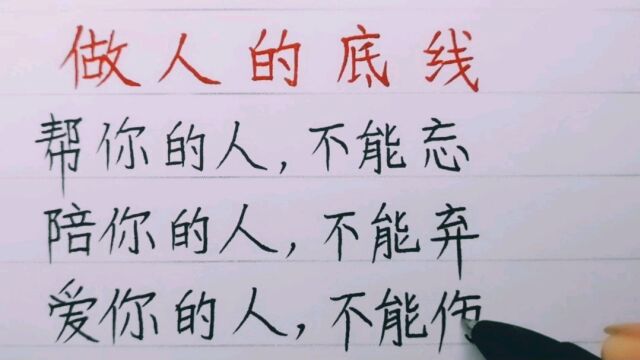 做人的底线
帮你的人,不能忘
陪你的人,不能弃
爱你的人,不能